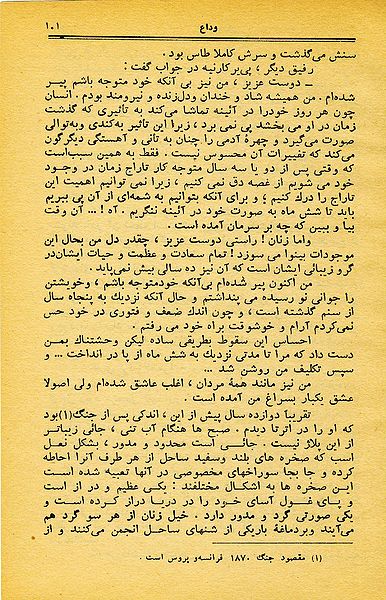 وداع ۱۰۱
سنش می‌گذشت و سرش کاملا طاس بود.
رفیق دیگر، پی‌یرکارنیه در جواب گفت:
ـ دوست عزیز، من نیز بی آنکه خود متوجه باشم پیر
شده‌ام. من همیشه شاد و خندان ودل‌زنده و نیرومند بودم. انسان
چون هر روز خودرا در آئینه تماشا می‌کند به تأثیری که گذشت
زمان در او می بخشد پی نمی برد، زیرا این تأثیر به‌کندی وبه‌توالی
صورت می‌گیرد و چهرهٔ آدمی را چنان به تأنی و آهستگی دیگرگون
می‌کند که تغییرات آن محسوس نیست. فقط به همین سبب‌است
که وقتی پس از دو یا سه سال متوجه کار تاراج زمان در وجود
خود می شویم از غصه دق نمی کنیم، زیرا نمی توانیم اهمیت این
تاراج را درك کنیم؛ و برای آنکه بتوانیم به شمه‌ای از آن پی ببریم
باید تا شش ماه به صورت خود در آئینه ننگریم. آه!... آن وقت
بیا و ببین که چه بر سرمان آمده است.
واما زنان! راستی دوست عزیز، چقدر دل من بحال این
موجودات بینوا می سوزد! تمام سعادت و عظمت و حیات ایشان‌در
گرو زیبائی ایشان است که آن نیز ده سالی بیش نمی‌یابد.
من اکنون پیر شده‌ام بی‌آنکه خودمتوجه باشم، وخویشتن
را جوانی نو رسیده می پنداشتم و حال آنکه نزدیك به پنجاه سال
از سنم گذشته است، و چون اندك ضعف و فتوری در خود حس
نمی‌کردم آرام و خوشوقت براه خود می رفتم.
احساس این سقوط بطریقی ساده لیکن وحشتناك بمن
دست داد که مرا تا مدتی نزدیك به شش ماه از پا در انداخت ... و
سپس تکلیف من روشن شد ...
من نیز مانند همهٔ مردان، اغلب عاشق شده‌ام ولی اصولا
عشق یکبار بسراغ من آمده است.
تقریباً دوازده سال پیش از این، اندکی پس از جنگ(۱)بود
که او را در اترتا دیدم. صبح ها هنگام آب تنی، جائی زیباتر
از این پلاژ نیست. جائی است محدود و مدور، بشکل نعل
اسب که صخره های بلند وسفید ساحل از هر طرف آنرا احاطه
کرده و جا بجا سوراخهای مخصوصی در آنها تعبیه شده است
این صخره ها به اشکال مختلفند: یکی عظیم و دراز است
و پای غول آسای خود را در دریا دراز کرده است و
یکی صورتی گرد و مدور دارد. خیل زنان از هر سو گرد هم
می‌آیند وبردماغهٔ باریکی از شنهای ساحل انجمن می‌کنند و از
(۱) مقصود جنگ ۱۸۷۰ فرانسه‌و پروس است.